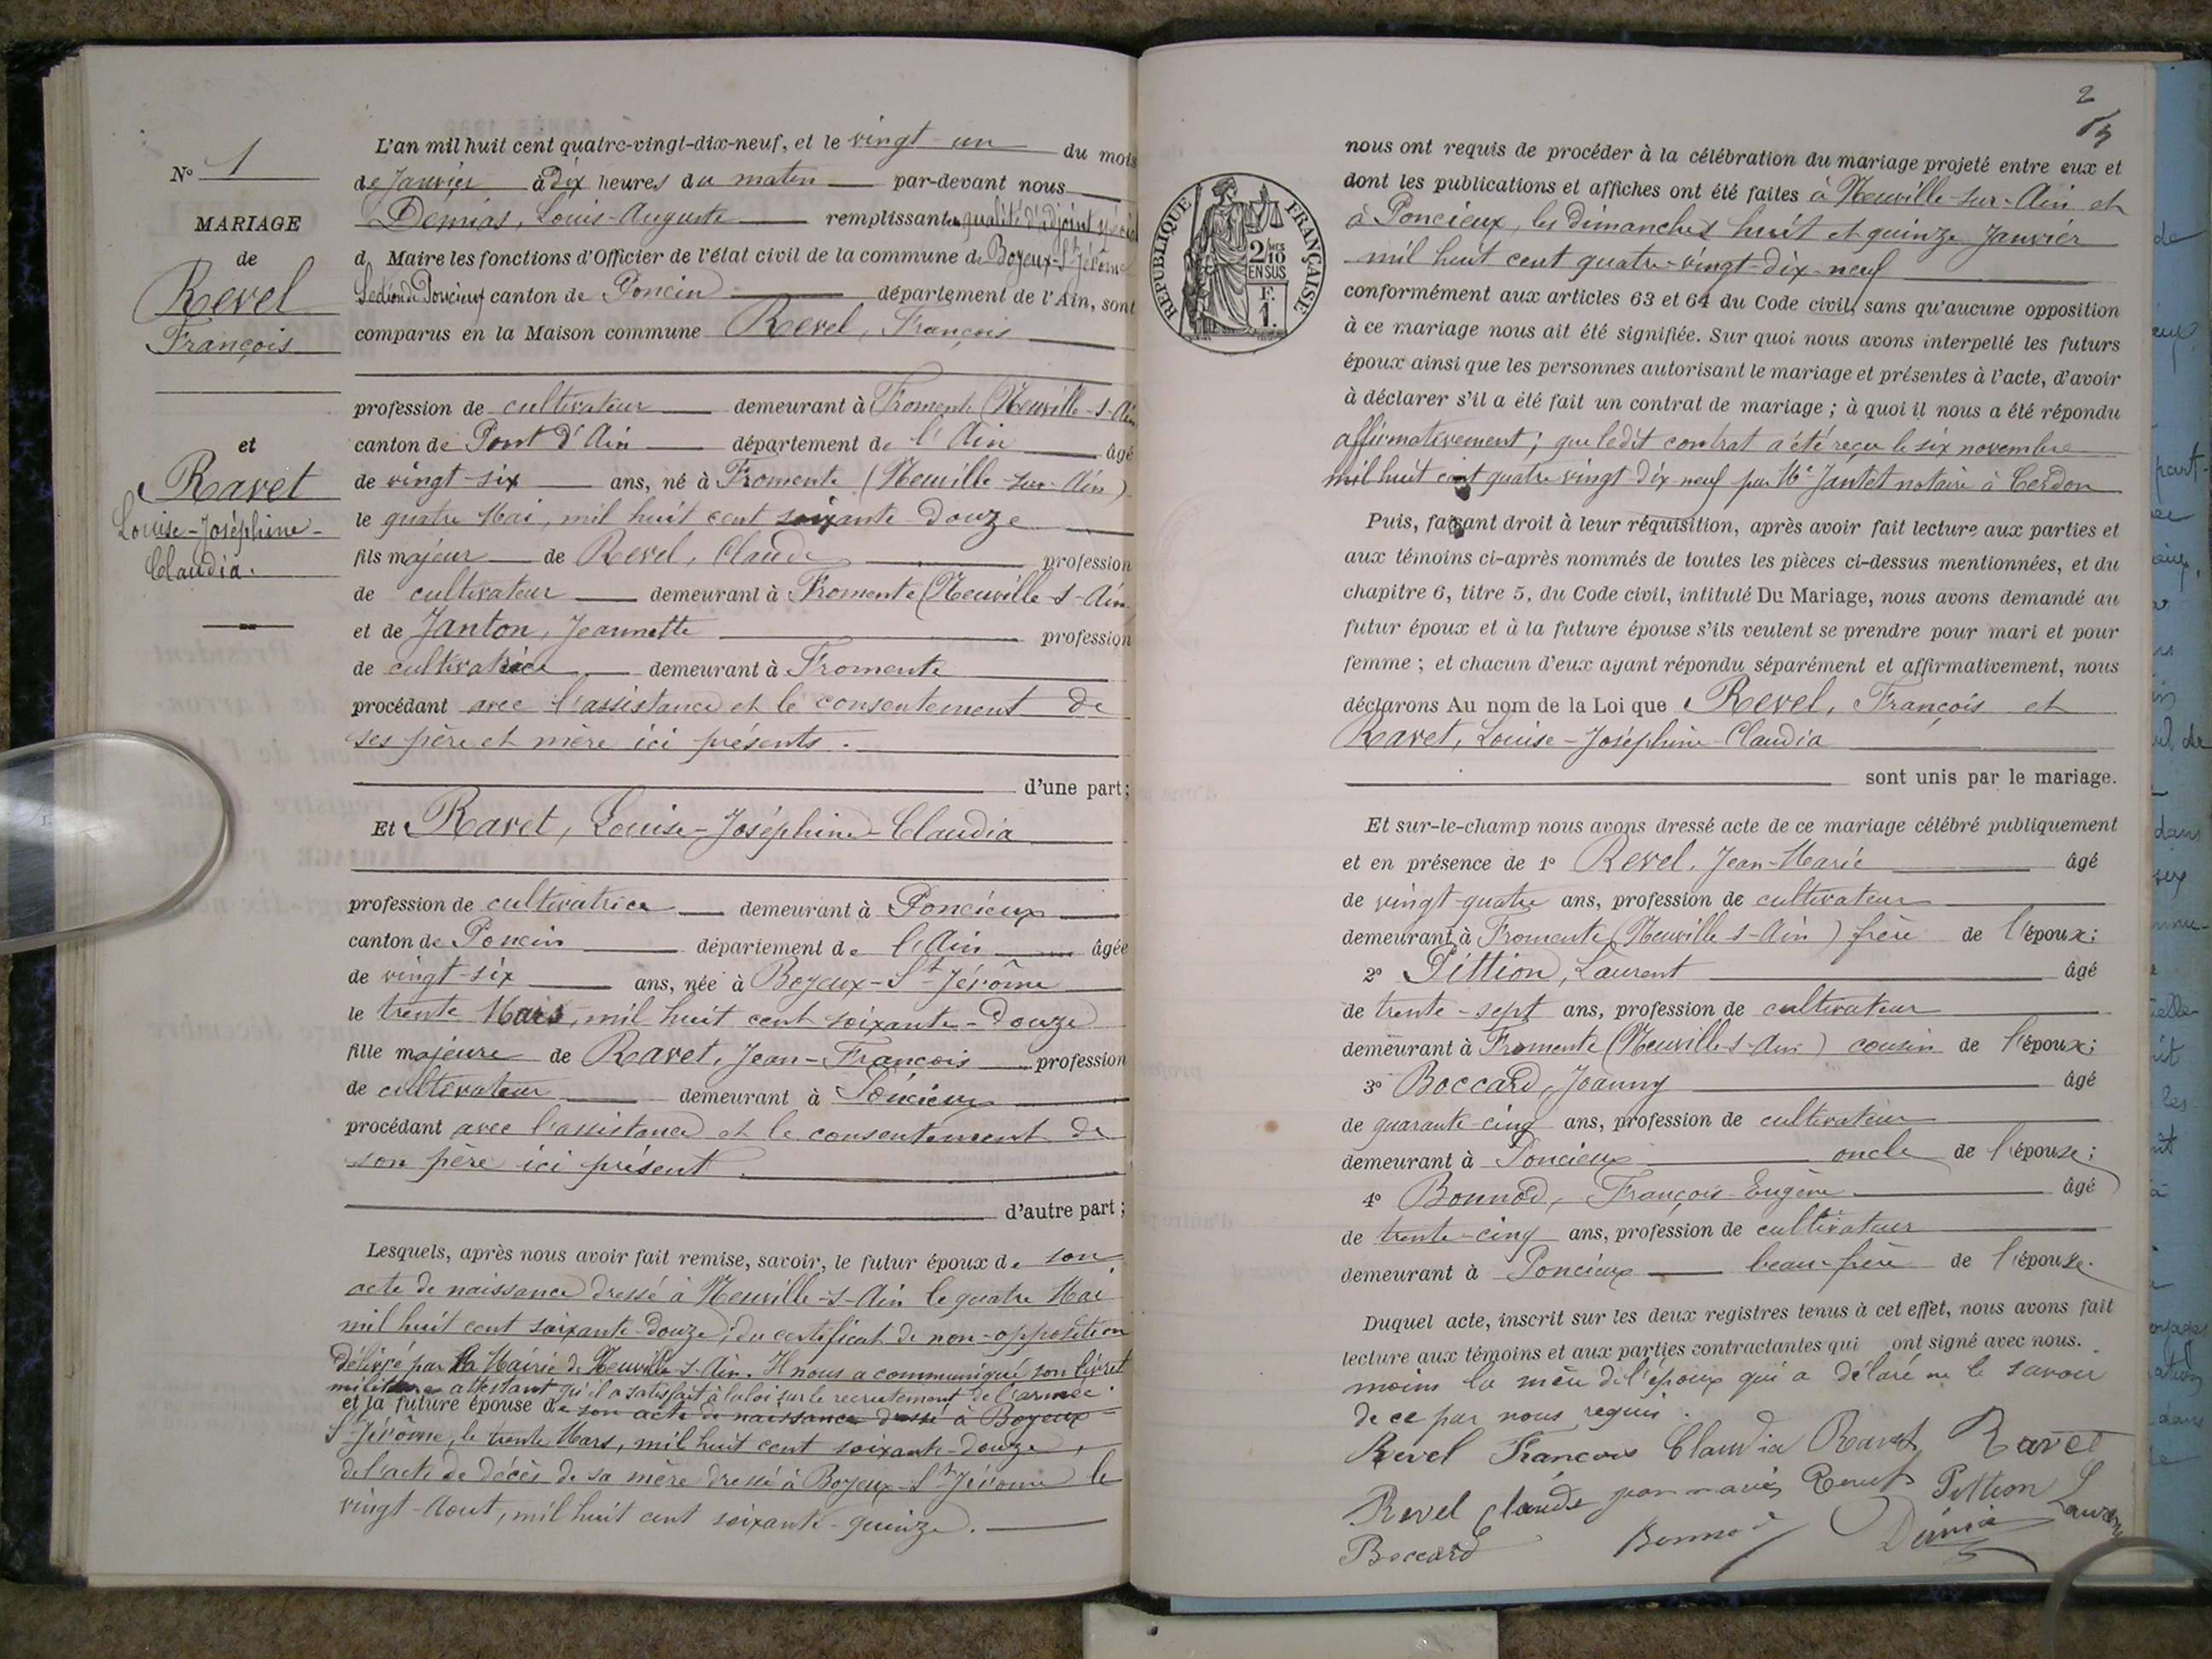 N° 1
MARIAGE
de
Revel
François
et
Ravet
Louise-Joséphine-
Claudia.
L'an mil huit cent quatre-vingt-dix-neuf, et le vingt-un du mois
de Janvier à dix heures du matin par-devant nous
Demias, Louis-Auguste remplissant en qualité d'adjoint spécial
d Maire les fonctions d'Officier de l'état civil de la commune de Boyeux-St-Jérôme
Section de Poncieux canton de Poncin département de l'Ain, sont
comparus en la Maison commune Revel, François
profession de cultivateur demeurant à Fromente (Neuville-s-Ain
canton de Pont d'Ain département de l'Ain âgé
de vingt-six ans, né à Fromente (Neuville-sur-Ain)
le quatre Mai, mil huit cent soixante-douze
fils majeur de Revel, Claude profession
de cultivateur demeurant à Fromente (Neuville-s-Ain
et de Janton, Jeannette profession
de cultivatrice demeurant à Fromente
procédant avec l'assistance et le consentement de
ses père et mère ici présents.
d'une part;
Et Ravet, Louise-Joséphine-Claudia
profession de cultivatrice demeurant à Poncieux
canton de Poncin département de l'Ain âgée
de vingt-six ans, née à Boyeux-St-Jérôme
le trente Mars, mil huit cent soixante-douze
fille majeure de Ravet, Jean-François profession
de cultivateur demeurant à Poncieux
procédant avec l'assistance et le consentement de
son père ici présent.
d'autre part;
Lesquels, après nous avoir fait remise, savoir, le futur époux de son
acte de naissance dressé à Neuville-s-Ain le quatre Mai
mil huit cent soixante-douze; du certificat de non-opposition
délivré par la Mairie de Neuville-s-Ain. Il nous a communiqué son livret
militaire attestant qu'il a satisfait à la loi sur le recrutement de l'armée.
et la future épouse de son acte de naissance dressé à Boyeux-
St-Jérôme, le trente Mars, mil huit cent soixante-douze,
de l'acte de décès de sa mère dressé à Boyeux-St-Jérôme le
vingt-Août, mil huit cent soixante-quinze.
2
REPUBLIQUE FRANÇAISE
2/10 EN SUS
F.
1.
nous ont requis de procéder à la célébration du mariage projeté entre eux et
dont les publications et affiches ont été faites à Neuville-sur-Ain et
à Poncieux, les dimanches huit et quinze Janvier
mil huit cent quatre-vingt-dix-neuf
conformément aux articles 63 et 64 du Code civil, sans qu'aucune opposition
à ce mariage nous ait été signifiée. Sur quoi nous avons interpellé les futurs
époux ainsi que les personnes autorisant le mariage et présentes à l'acte, d'avoir
à déclarer s'il a été fait un contrat de mariage; à quoi il nous a été répondu
affirmativement; que ledit contrat a été reçu le six novembre
mil huit cent quatre vingt-dix-neuf par Me Jantet notaire à Cerdon
Puis, faisant droit à leur réquisition, après avoir fait lecture aux parties et
aux témoins ci-après nommés de toutes les pièces ci-dessus mentionnées, et du
chapitre 6, titre 5, du Code civil, intitulé Du Mariage, nous avons demandé au
futur époux et à la future épouse s'ils veulent se prendre pour mari et pour
femme; et chacun d'eux ayant répondu séparément et affirmativement, nous
déclarons Au nom de la Loi que Revel, François et
Ravet, Louise-Joséphine-Claudia
sont unis par le mariage.
Et sur-le-champ nous avons dressé acte de ce mariage célébré publiquement
et en présence de 1° Revel, Jean-Marie âgé
de vingt-quatre ans, profession de cultivateur
demeurant à Fromente (Neuville-s-Ain) frère de l'époux;
2° Pittion, Laurent âgé
de trente-sept ans, profession de cultivateur
demeurant à Fromente (Neuville-s-Ain) cousin de l'époux;
3° Boccard, Joanny âgé
de quarante-cinq ans, profession de cultivateur
demeurant à Poncieux oncle de l'épouse;
4° Bonnod, François-Eugène âgé
de trente-cinq ans, profession de cultivateur
demeurant à Poncieux beau-frère de l'épouse.
Duquel acte, inscrit sur les deux registres tenus à cet effet, nous avons fait
lecture aux témoins et aux parties contractantes qui ont signé avec nous.
moins la mère de l'époux qui a déclaré ne le savoir
de ce par nous requis.
Revel François Claudia Ravet Ravet
Revel Claude Pittion Laurent
Boccard Bonnod Démia